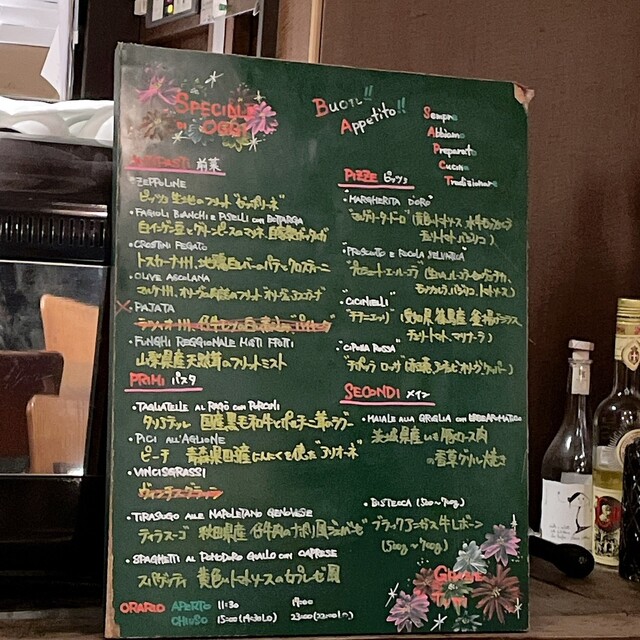 SPECIALE
di
OGGI
BUON!!
Appetito!!
Sempre
Abbiamo
Preparato
Cucina
Tradizionale
ANTIPASTI 前菜
・ZEPPOLINE
ピッツァ生地のフリット "ゼッポリーネ"
・FAGIOLI BIANCHI E PISELLI con BOTTARGA
白インゲン豆とグリーンピースのマリネ、自家製ボッタルガ
・CROSTINI FEGATO
トスカーナ州、地鶏白レバーのパテ クロスティーニ
・OLIVE ASCOLANA
マルケ州、オリーヴの肉詰めフリット オリーヴェアスコラーナ
×・PAJATA
・FUNGHI REGGIONALE MISTI FRITTI
山梨県産天然茸のフリットミスト
PRIMI パスタ
・TAGLIATELLE AL RAGÙ CON PORCINI
タリアテッレ 国産黒毛和牛とポルチーニ茸のラグー
・PICI ALL'AGLIONE
ピーチ 青森県田子産にんにくを使った "アリオーネ"
・VINCISGRASSI
ヴィンチスグラッシ
・TIRASUGO ALLE NAPOLETANO GENOVESE
ティラスーゴ 秋田県産仔牛肉のナポリ風ジェノベーゼ
・SPAGHETTI AL POMODORO GIALLO CON CAPRESE
スパゲッティ 黄色いトマトソースのカプレーゼ風
PIZZE ピッツァ
・MARGHERITA D'ORO
マルゲリータ・ドーロ (黄色トマトソース 水牛モッツァレラ
チェリートマト バジリコ)
・PROSCIUTTO E RUCOLA SELVATICA
モッツァレラ、バジリコ、トマトソース)
・CICINIELLI
"チチニエッリ" (愛知県篠島産 釜揚シラス
チェリートマト、マリナーラ)
・CIPOLLA ROSSA
チポッラ ロッサ
SECONDI メイン
・MAIALE ALLA GRIGLIA CON ERBE AROMATICO
茨城県産いも豚ロース肉
の香草グリル焼き
・BISTECCA (500~700g)
ブラックアンガス牛Lボーン
(500g~700g)
GRAZIE
di
TUTTI
ORARIO APERTO 11:30 17:00
CHIUSO 15:00 (14:30 L.O) 23:00 (22:00 L.O)